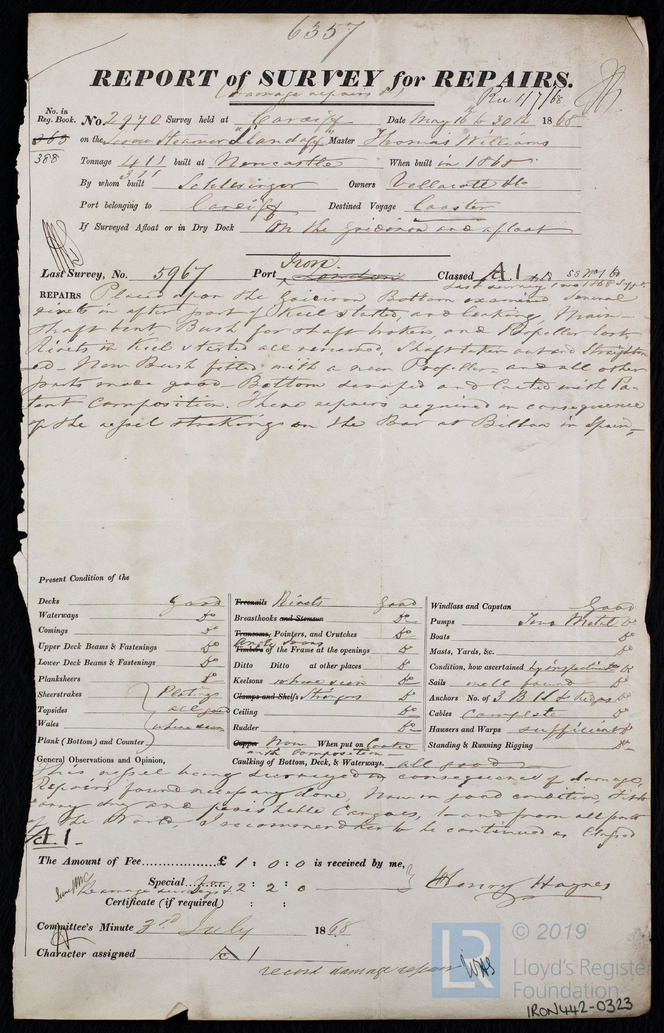 6357
REPORT of SURVEY for REPAIRS.
(Damage repairs &c)
Rec 1/7/68
No. in Reg. Book. No. 2970 Survey held at Cardiff Date May 16 to 30th 1868
388 on the Screw Steamer "Llandaff" Master Thomas Williams
Tonnage 411 built at Newcastle When built in 1865
311
By whom built Schlesinger Owners Vellacott &Co
Port belonging to Cardiff Destined Voyage Coaster
If Surveyed Afloat or in Dry Dock On the Gridiron and afloat
Iron
Last Survey, No. 5967 Port London Classed A.1
REPAIRS Placed upon the Gridiron Bottom examined several
rivets in after part of Keel started, and leaking, Main
Shaft bent Bush for shaft broken, and Propeller lost
Rivets in Keel started all renewed, Shaft taken out and Straighten
ed - New Bush fitted with a new Propeller and all other
parts made good - Bottom scraped and Coated with Pa-
tent Composition. These repairs required in consequence
of the vessel striking on the Bar at Bilbao in Spain,
Present Condition of the
Decks Good
Waterways Do
Comings Do
Upper Deck Beams & Fastenings Do
Lower Deck Beams & Fastenings Do
Planksheers Do
Sheerstrakes
Topsides
Wales
Plank (Bottom) and Counter
Plating all good where seen
Treenails Rivets Good
Breasthooks and Stemson Do
Transoms, Pointers, and Crutches Do
Angle Irons
Timbers of the Frame at the openings Do
Ditto Ditto at other places Do
Keelsons where seen Do
Clamps and Shelfs Stringers Do
Ceiling Do
Rudder Do
Copper Iron When put on Coated
with Composition
Caulking of Bottom, Deck, & Waterways. all good
Windlass and Capstan Good
Pumps Two Metal Do
Boats Do
Masts, Yards, &c. Do
Condition, how ascertained by inspection Do
Sails well found Do
Anchors No. of 3 B 1 S & Kedges Do
Cables Complete Do
Hawsers and Warps sufficient Do
Standing & Running Rigging Do
General Observations and Opinion,
This vessel being surveyed in consequence of damage,
Repairs found necessary done, Now in good condition, fit to
carry dry and perishable Cargoes, to and from all parts
of the World, I recommend her to be continued as Classed
A.1.
The Amount of Fee £ 1 : 0 : 0 is received by me,
Special 2 : 2 : 0
Damage surveys &c
Certificate (if required) : :
Henry Haynes
Committee's Minute 3rd July 1868
Character assigned A1
record damage repairs
LR © 2019
Lloyd's Register
Foundation
IRON442-0323